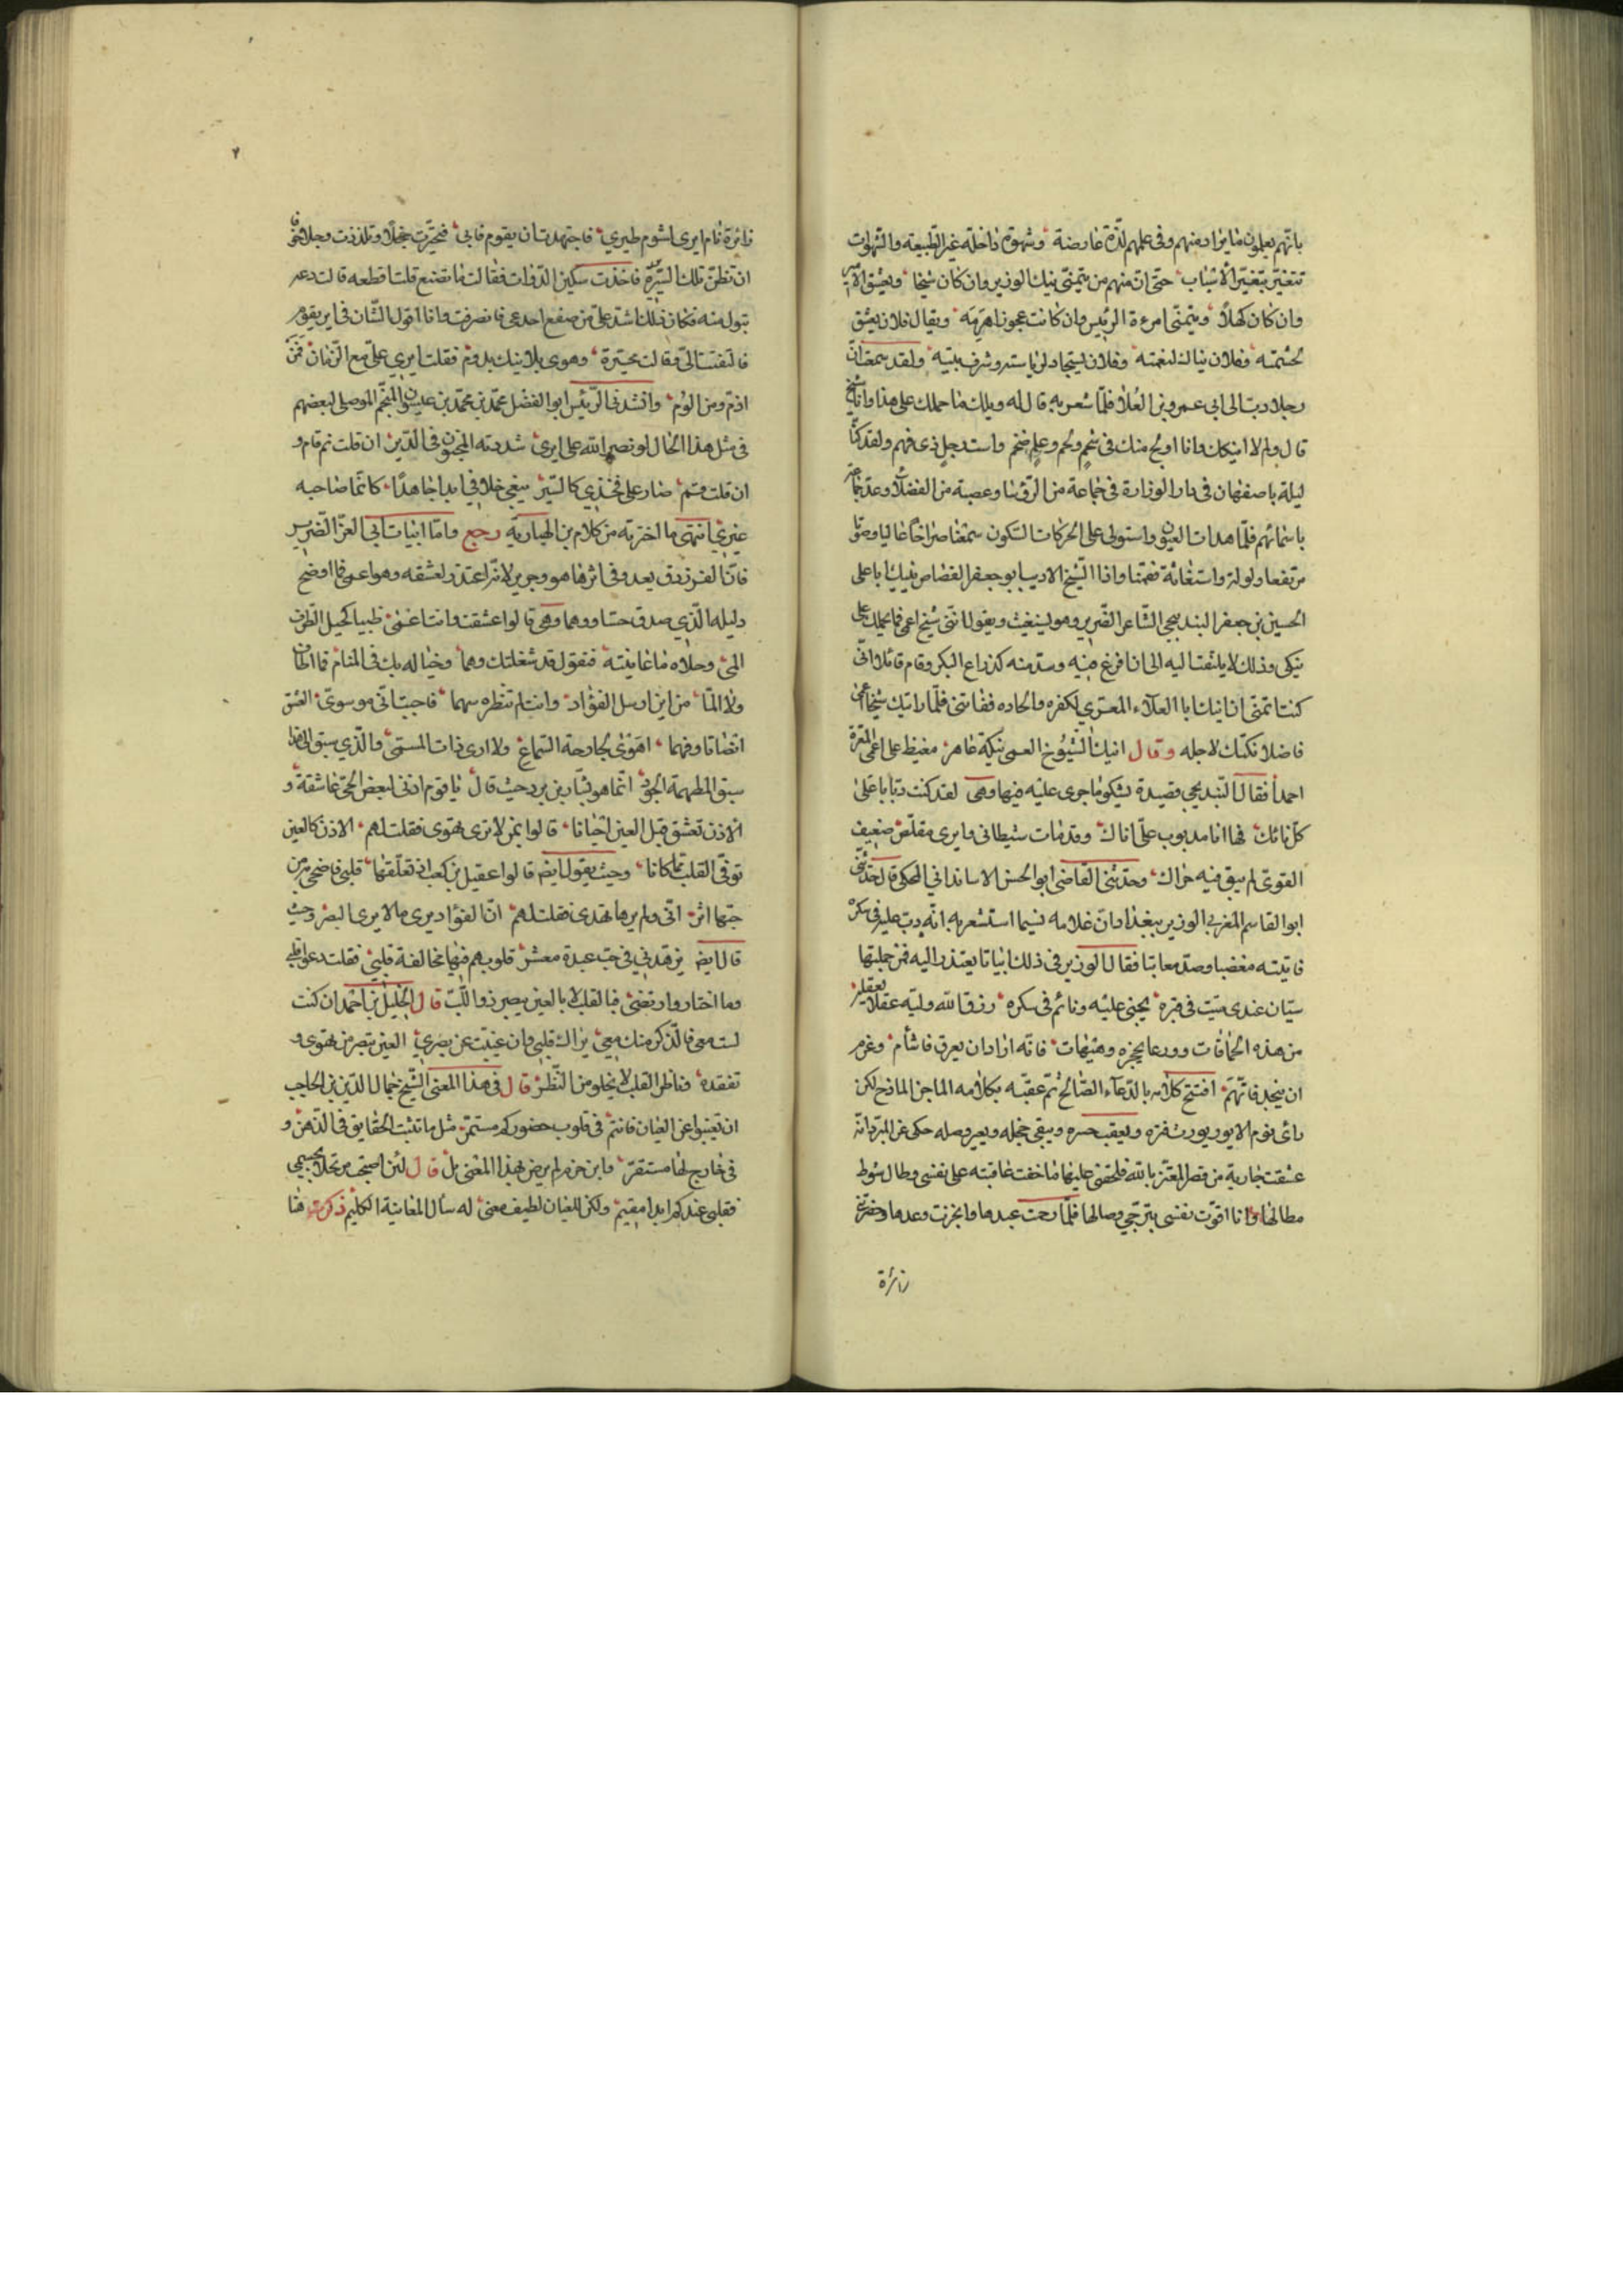 بانهم يعلمون ما يراد منهم وفى علمهم لذة عارضة وشهوة داخلة غير الطبيعة والشهوات
تتغير بتغير الاسباب حتى ان منهم من يتمنى نيك الوزير وان كان شيخا ويعشق الامير
وان كان كهلا ويتمنى امرءة الرئيس وان كانت عجوزا هرمه ويقال فلان يعشق
لحشمته وفلان نياك لنعمته وفلان يستجاد لرياسته وشرف بيته ولقد سمعت ان
رجلا دب الى ابى عمرو بن العلا فلما شعر به قال له ويلك ما حملك على هذا وانا شيخ
قال ولم لا انيكك وانا اولج منك فى شحم ولحم وعلم ضخم واست رجل ذى فهم ولقد كنا
ليلة باصفهان فى دار الوزارة فى جماعة من الرؤسا وعصبة من الفضلا وعد جماعة
باسمائهم فلما هدات العيون واستولى على الحركات السكون سمعنا صراخا عاليا وصوتا
مرتفعا ولولة واستغاثة فقمنا واذا الشيخ الاديب ابو جعفر القصاص ينيك ابا على
الحسين بن جعفر البندنيجى الشاعر الضرير وهو يستغيث ويقول اننى شيخ اعمى فما يحملك على
نيكى وذلك لا يلتفت اليه الى ان فرغ منه وسل منه كذراع البكر وقام قائلا انى
كنت اتمنى ان انيك ابا العلاء المعرى لكفره والحاده ففاتنى فلما رايتك شيخا اعمى
فاضلا نكتك لاجله وقال انيك الشيوخ العمى نيكة عاهر مغيظ على اعمى المعرة
احمدا فقال البندنيجى قصيدة يشكو ما جرى عليه فيها وهى لقد كنت دبابا على
كل نائك فها انا مدبوب على اناك وقد مات شيطانى وايرى مقلص ضعيف
القوى لم يبق فيه حراك وحدثنى القاضى ابو الحسن الاسانداني المحكى قال حدثنى
ابو القاسم المغربى الوزير ببغداد ان غلامه نسيما استشعر به انه دب عليه فى سكره
فاتيته مغضبا وصد معاتبا فقال الوزير فى ذلك ابياتا يعتذر اليه فمن جملتها
سيان عندى ميت فى قبره يجنى عليه ونائم فى سكره رزق الله وليه عقلا يعقله
من هذه الحماقات وورعا يحجزه وهيهات فانه اذا اراد ان يعرق فاشأم وعزم
ان ينجد فاتهم افتتح كلامه بالدعاء الصالح ثم عقبه بكلامه الماجن المازح لكن
راى نوم الاير يورث فتره ويعقب حسره ويبقى خجله ويعير وصله حكى عن المبرد انه
عشقت جارية من قصر المعتز بالله فلحقنى عليها ما خفت عاقبته على نفسى وطال شوط
مطالها وانا اقوت نفسى بترجى وصالها فلما رحت عبدها وانجزت وعدها وحضرتنى
زائرة
زائرة نام ايرى لشوم طيري فاجتهدت ان يقوم فابى فتحيرت خجلا وتلذذت وجلا خوفا
ان تظن تلك السيرة فاخذت سكين الدوات فقالت ما تصنع قلت اقطعه قالت دعه
تبول منه فكان ذلك اشد على من صفع اخدعى فانصرفت وانا اقول الشان فى اير يقوم
فالتفتت الى وقالت محيرة وهوى بلا نيك يدوم فقلت ايرى على مع الزمان فمن
اذم ومن الوم وانشدنى الرئيس ابو الفضل محمد بن محمد بن عيسون المنجم الموصلى لبعضهم
فى مثل هذا الحال لو نصرالله على ايرى شددته المجنون فى الدين ان قلت نم قام و
ان قلت قم صار على فخذي كالسير يبغى خلافى ابدا جاهدا كانما صاحبه
غيري انتهى ما اخترته من كلام بن الهبارية رجع واما ابيات ابى العز الضرير
فان الفرزدق يعدو فى اثرها هو وجرير لانه اعتذر لعشقه وهو اعمى فما اوضح
دليله الذي صدق حسا ووهما وهى قالوا عشقت وانت اعمى ظبيا كحيل الطرف
المى وحلاه ما عاينته فتقول قد شغلتك وهما وخياله بك فى المنام فما اطاف
ولا الما من اين ارسل الفؤاد وانت لم تنظره سهما فاجبت انى موسوى العشق
انصاتا وفهما اهوى بجارحة السماع ولا ارى ذات المسمى والذي سبق الى هذا
سبق المطهمة الجرد انما هو بشار بن برد حيث قال يا قوم اذنى لبعض الحى عاشقة و
الاذن تعشق قبل العين احيانا قالوا بمن لا ترى تهوى فقلت لهم الاذن كالعين
توفى القلب ما كانا وحيث يقول ايضا قالوا عقيل بن كعب اذ تعلقتها قلبى فاضحى من
حبها اثر انى ولم يرها تهدى فقلت لهم ان الفؤاد يرى ما لا يرى البصر وحيث
قال ايضا يزهدني فى حب عبدة معشر قلوبهم فيها مخالفة قلبى فقلت دعوا قلبى
وما اختار وارتضى فبالقلب لا بالعين يبصر ذو اللب قال الخليل بن احمد ان كنت
لست معى فالذكر منك معي يراك قلبى وان غيبت عن بصري العين تبصر من تهوى و
تفقده وناظر القلب لا يخلو من النظر قال فى هذا المعنى الشيخ جمال الدين بن الحاجب
ان تغيبوا عن العيان فانتم فى قلوب حضوركم مستمر مثل ما تثبت الحقايق فى الذهن و
فى خارج لها مستقر وابن حزم لم يرض بهذا المعنى بل قال لئن اصبحت مرتحلا بجسمي
فقلبى عندكم ابدا مقيم ولكن للعيان لطيف معنى له سأل المعاينة الكليم ذكرت هنا